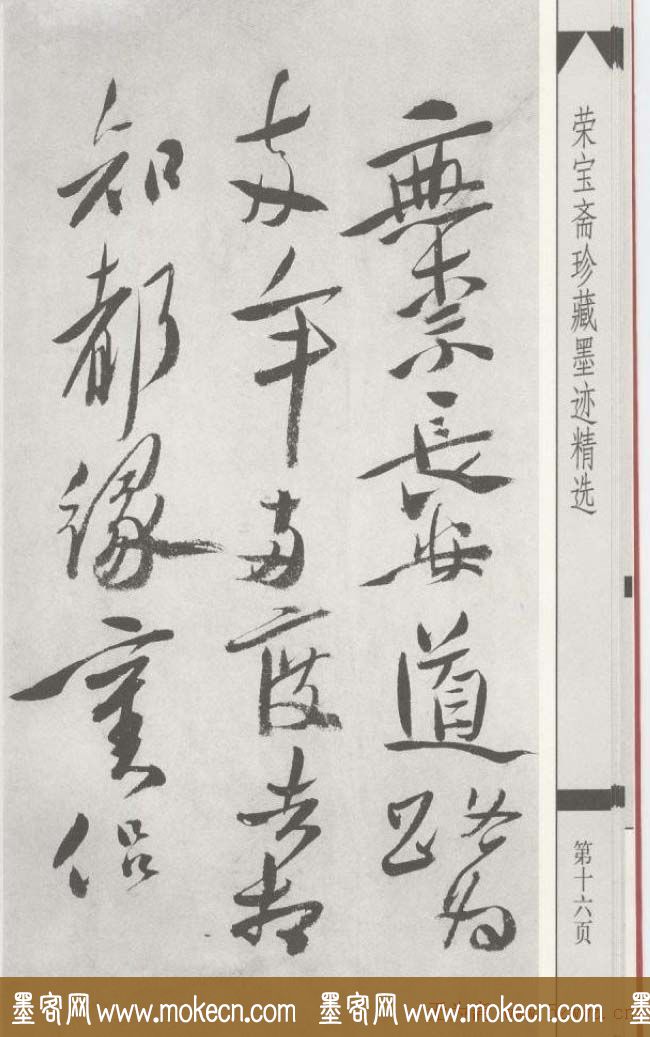 荣宝斋珍藏墨迹精选
第十六页
無柰長安道路
年度去相
知都緣侶
墨客网 www.mokecn.com 墨客网 www.mokecn.com